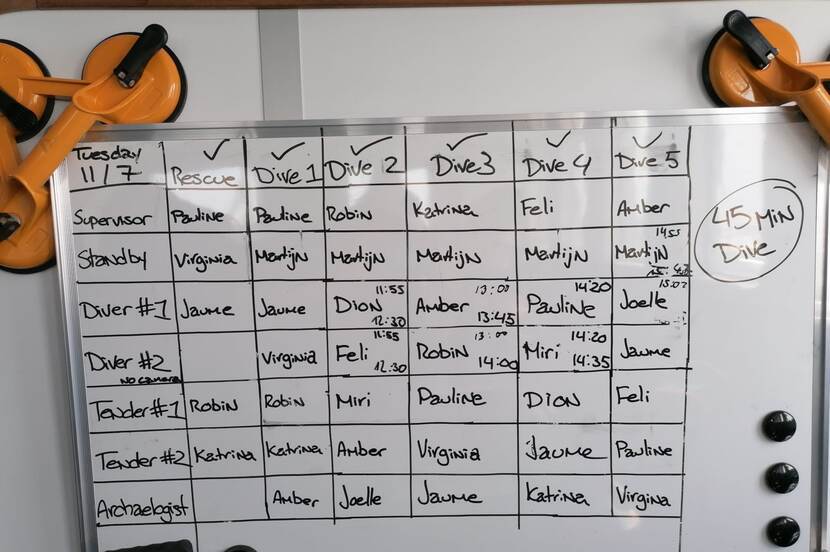 Tuesday Rescue Dive 1 Dive 2 Dive 3 Dive 4 Dive 5
11/7
Supervisor Pauline Pauline Robin Katrina Feli Amber
45 MIN
Dive
Standby Virginia Martijn Martijn Martijn Martijn Martijn 14:55
Diver #1 Jaume Jaume Dion 11:55 12:30 Amber 13:00 13:45 Pauline 14:20 Joelle 15:02
Diver #2 Virginia Feli 11:55 12:30 Robin 13:00 14:00 Miri 14:20 14:35 Jaume
NO CAMERA
Tender #1 Robin Robin Miri Pauline Dion Feli
Tender #2 Katrina Katrina Amber Virginia Jaume Pauline
Archaelogist Amber Joelle Jaume Katrina Virgina